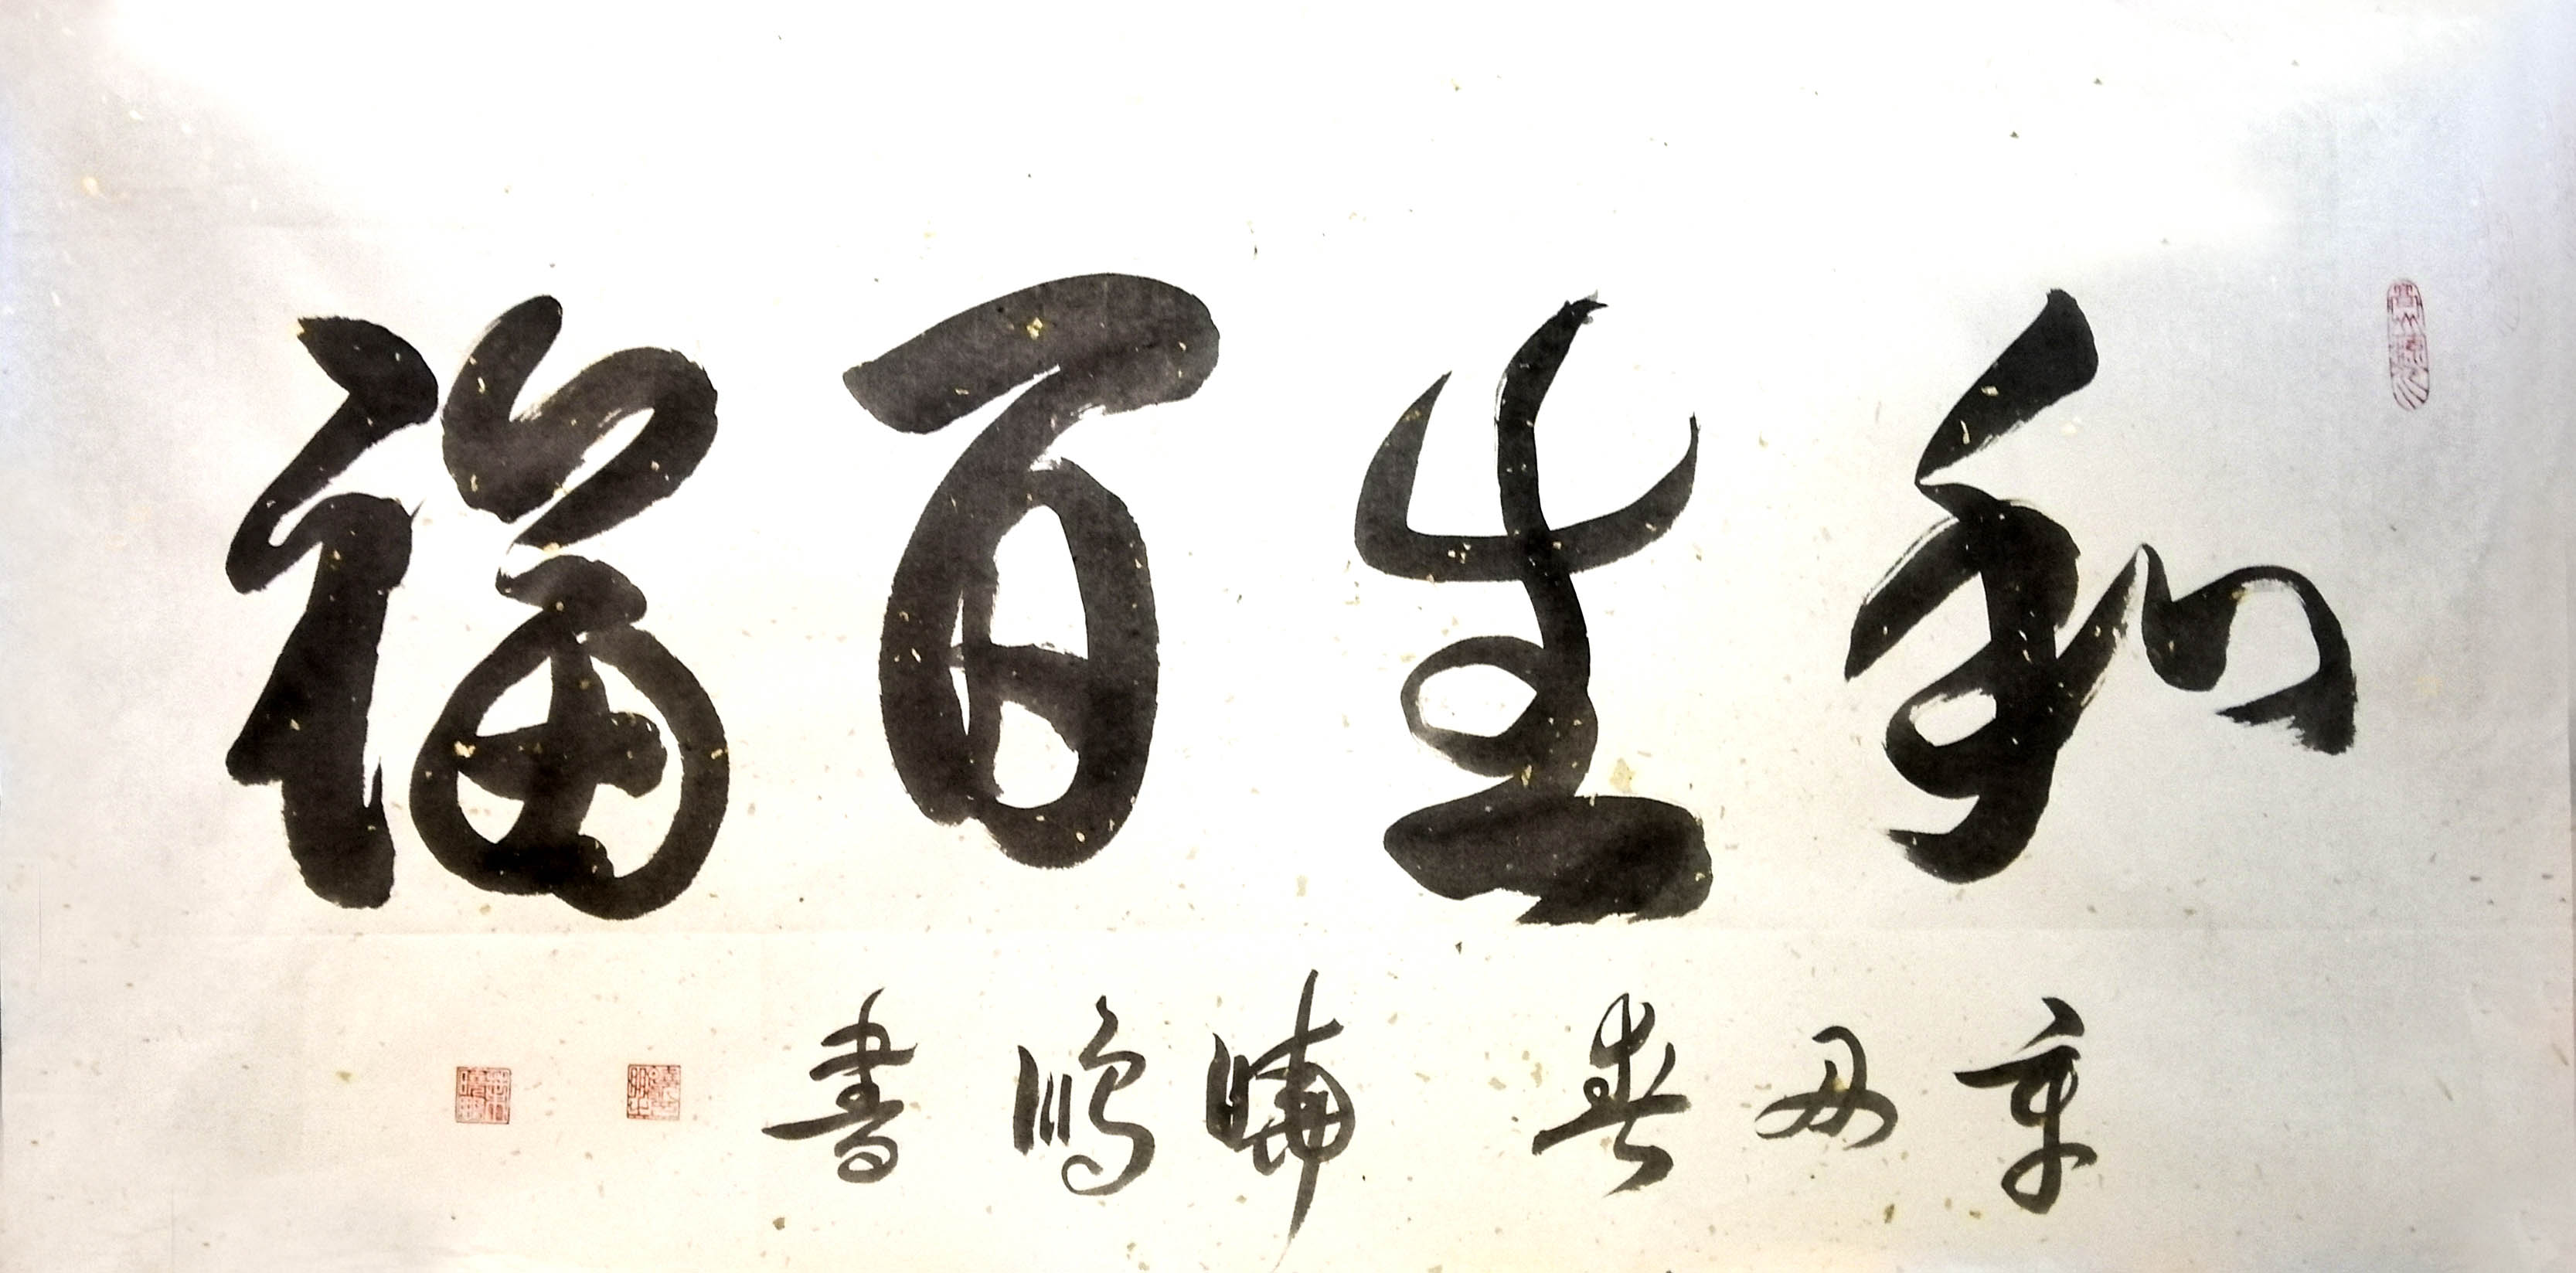 和生百福
辛丑春 鵬書